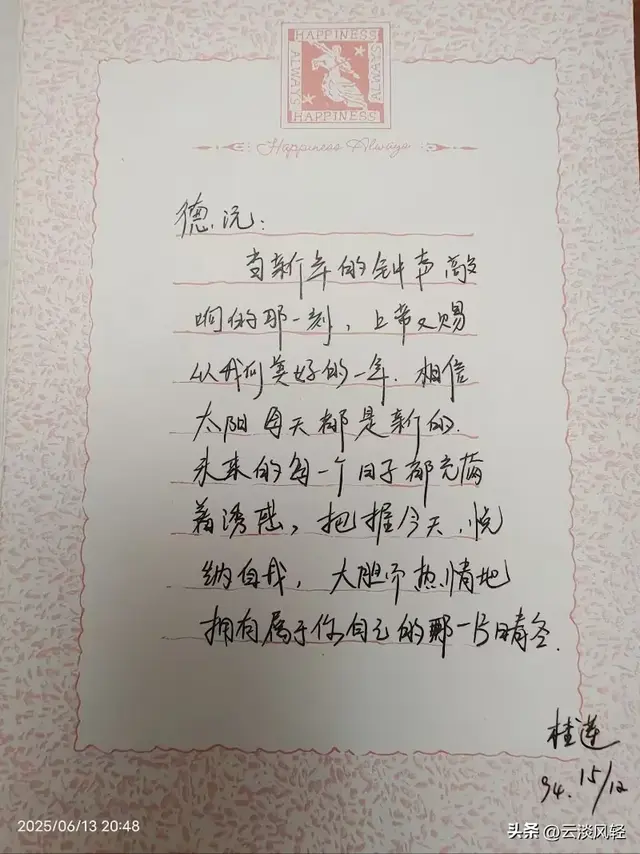 HAPPINESS
ALWAYS
ALWAYS
HAPPINESS
Happiness Always
德沅:
当新年的钟声敲
响的那一刻,上帝又赐
以我们美好的一年.相信
太阳每天都是新的.
未来的每一个日子都充满
着诱惑,把握今天,悦
纳自我,大胆而热情地
拥有属于你自己的那一片晴空.
桂莲
94.15/12
2025/06/13 20:48
头条@云淡风轻